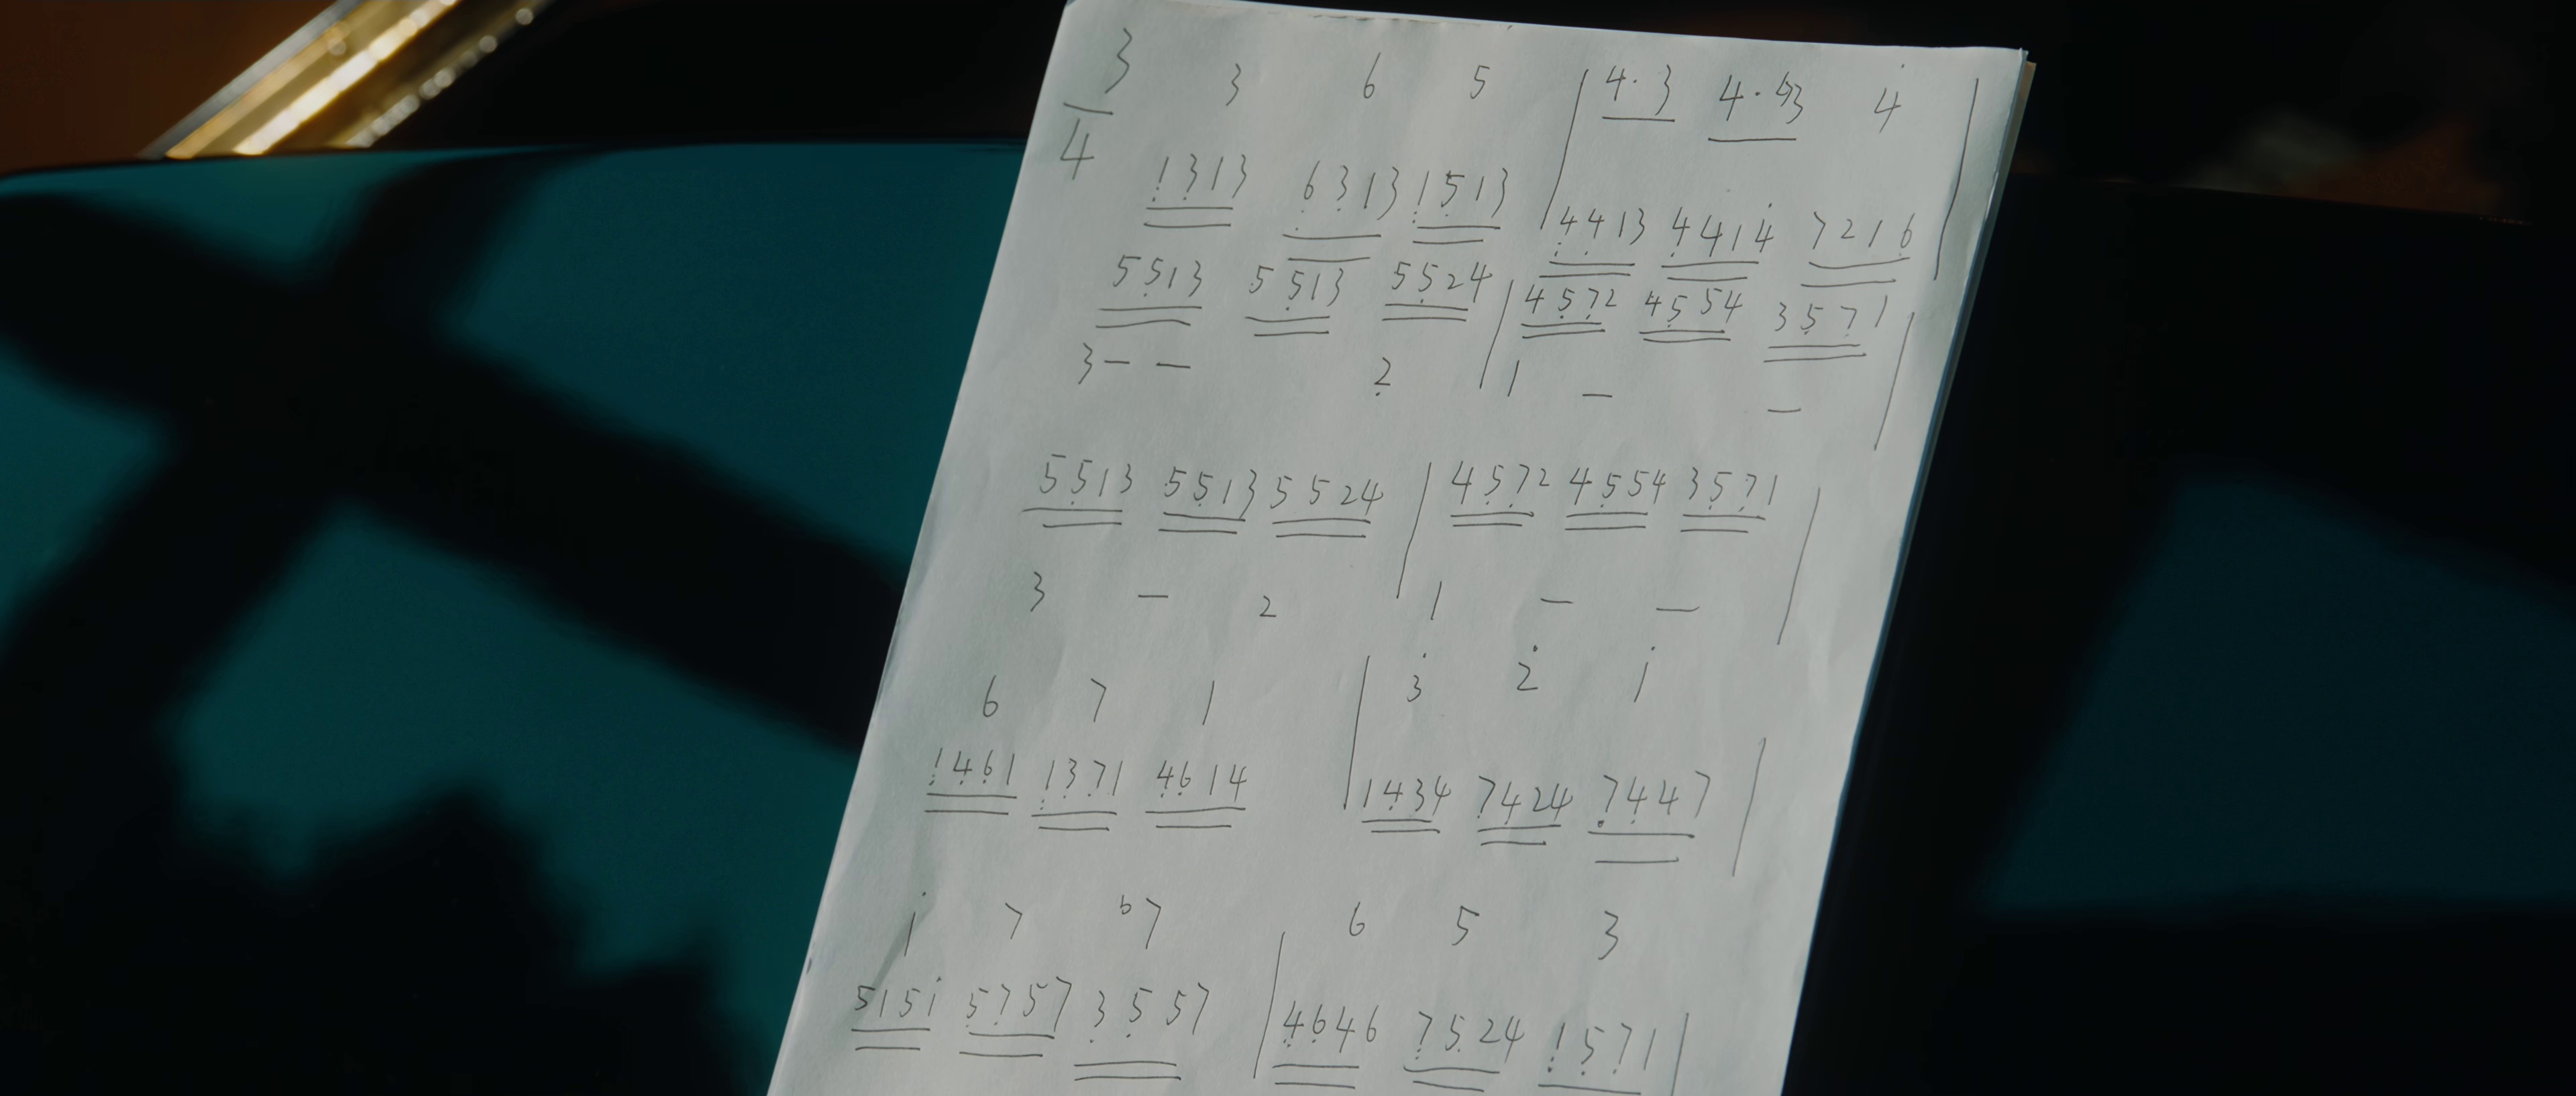 3/4 3 6 5 | 4·3 4·43 4̇ |
1̣313 6̣3̣13 1̣5̣13 | 4̣4̣13 4̣414̇ 7216
55̣13 55̣13 55̣24 | 45̣7̣2 45̣54 35̣7̣1 |
3 — — 2̣ | 1 — —
55̣13 55̣13 5524 | 45̣7̣2 45̣54 35̣7̣1 |
3 — 2 | 1 — —
6 7 1 | 3̇ 2̇ 1̇
1̣4̣6̣1 1̣3̣7̣1 4̣6̣14 | 14̣34 7̣4̣24 7̣4̣47 |
1̇ 7 ♭7 | 6 5 3
5151̇ 5̣7̣57 3̣5̣57 | 4̣6̣46 7̣5̣24 1̣5̣7̣1 |